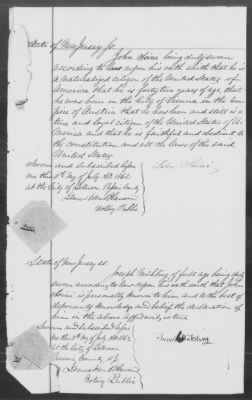 State of New Jersey ss.
John Heini being duly sworn
according to law upon his oath saith that he is
a naturalized citizen of the United States of
America that he is forty five years of age, that
he was born in the City of Vienna in the Em-
pire of Austria that he has been and still is a
true and loyal citizen of the United States of A-
merica and that he is faithful and obedient to
the constitution and all the laws of the said
United States.
Sworn and Subscribed before
me this 8th day of July AD 1862
at the City of Paterson
Notary Public
State of New Jersey ss.
Joseph Mühling of full age being duly
sworn according to law upon his oath saith that John
is personally known to him and to the best of
knowledge and belief the declaration of
him in the above affidavit is true
Sworn and Subscribed before
me this 8th day of July AD 1862
at the City of Paterson
Passaic County N.J.
Notary Public